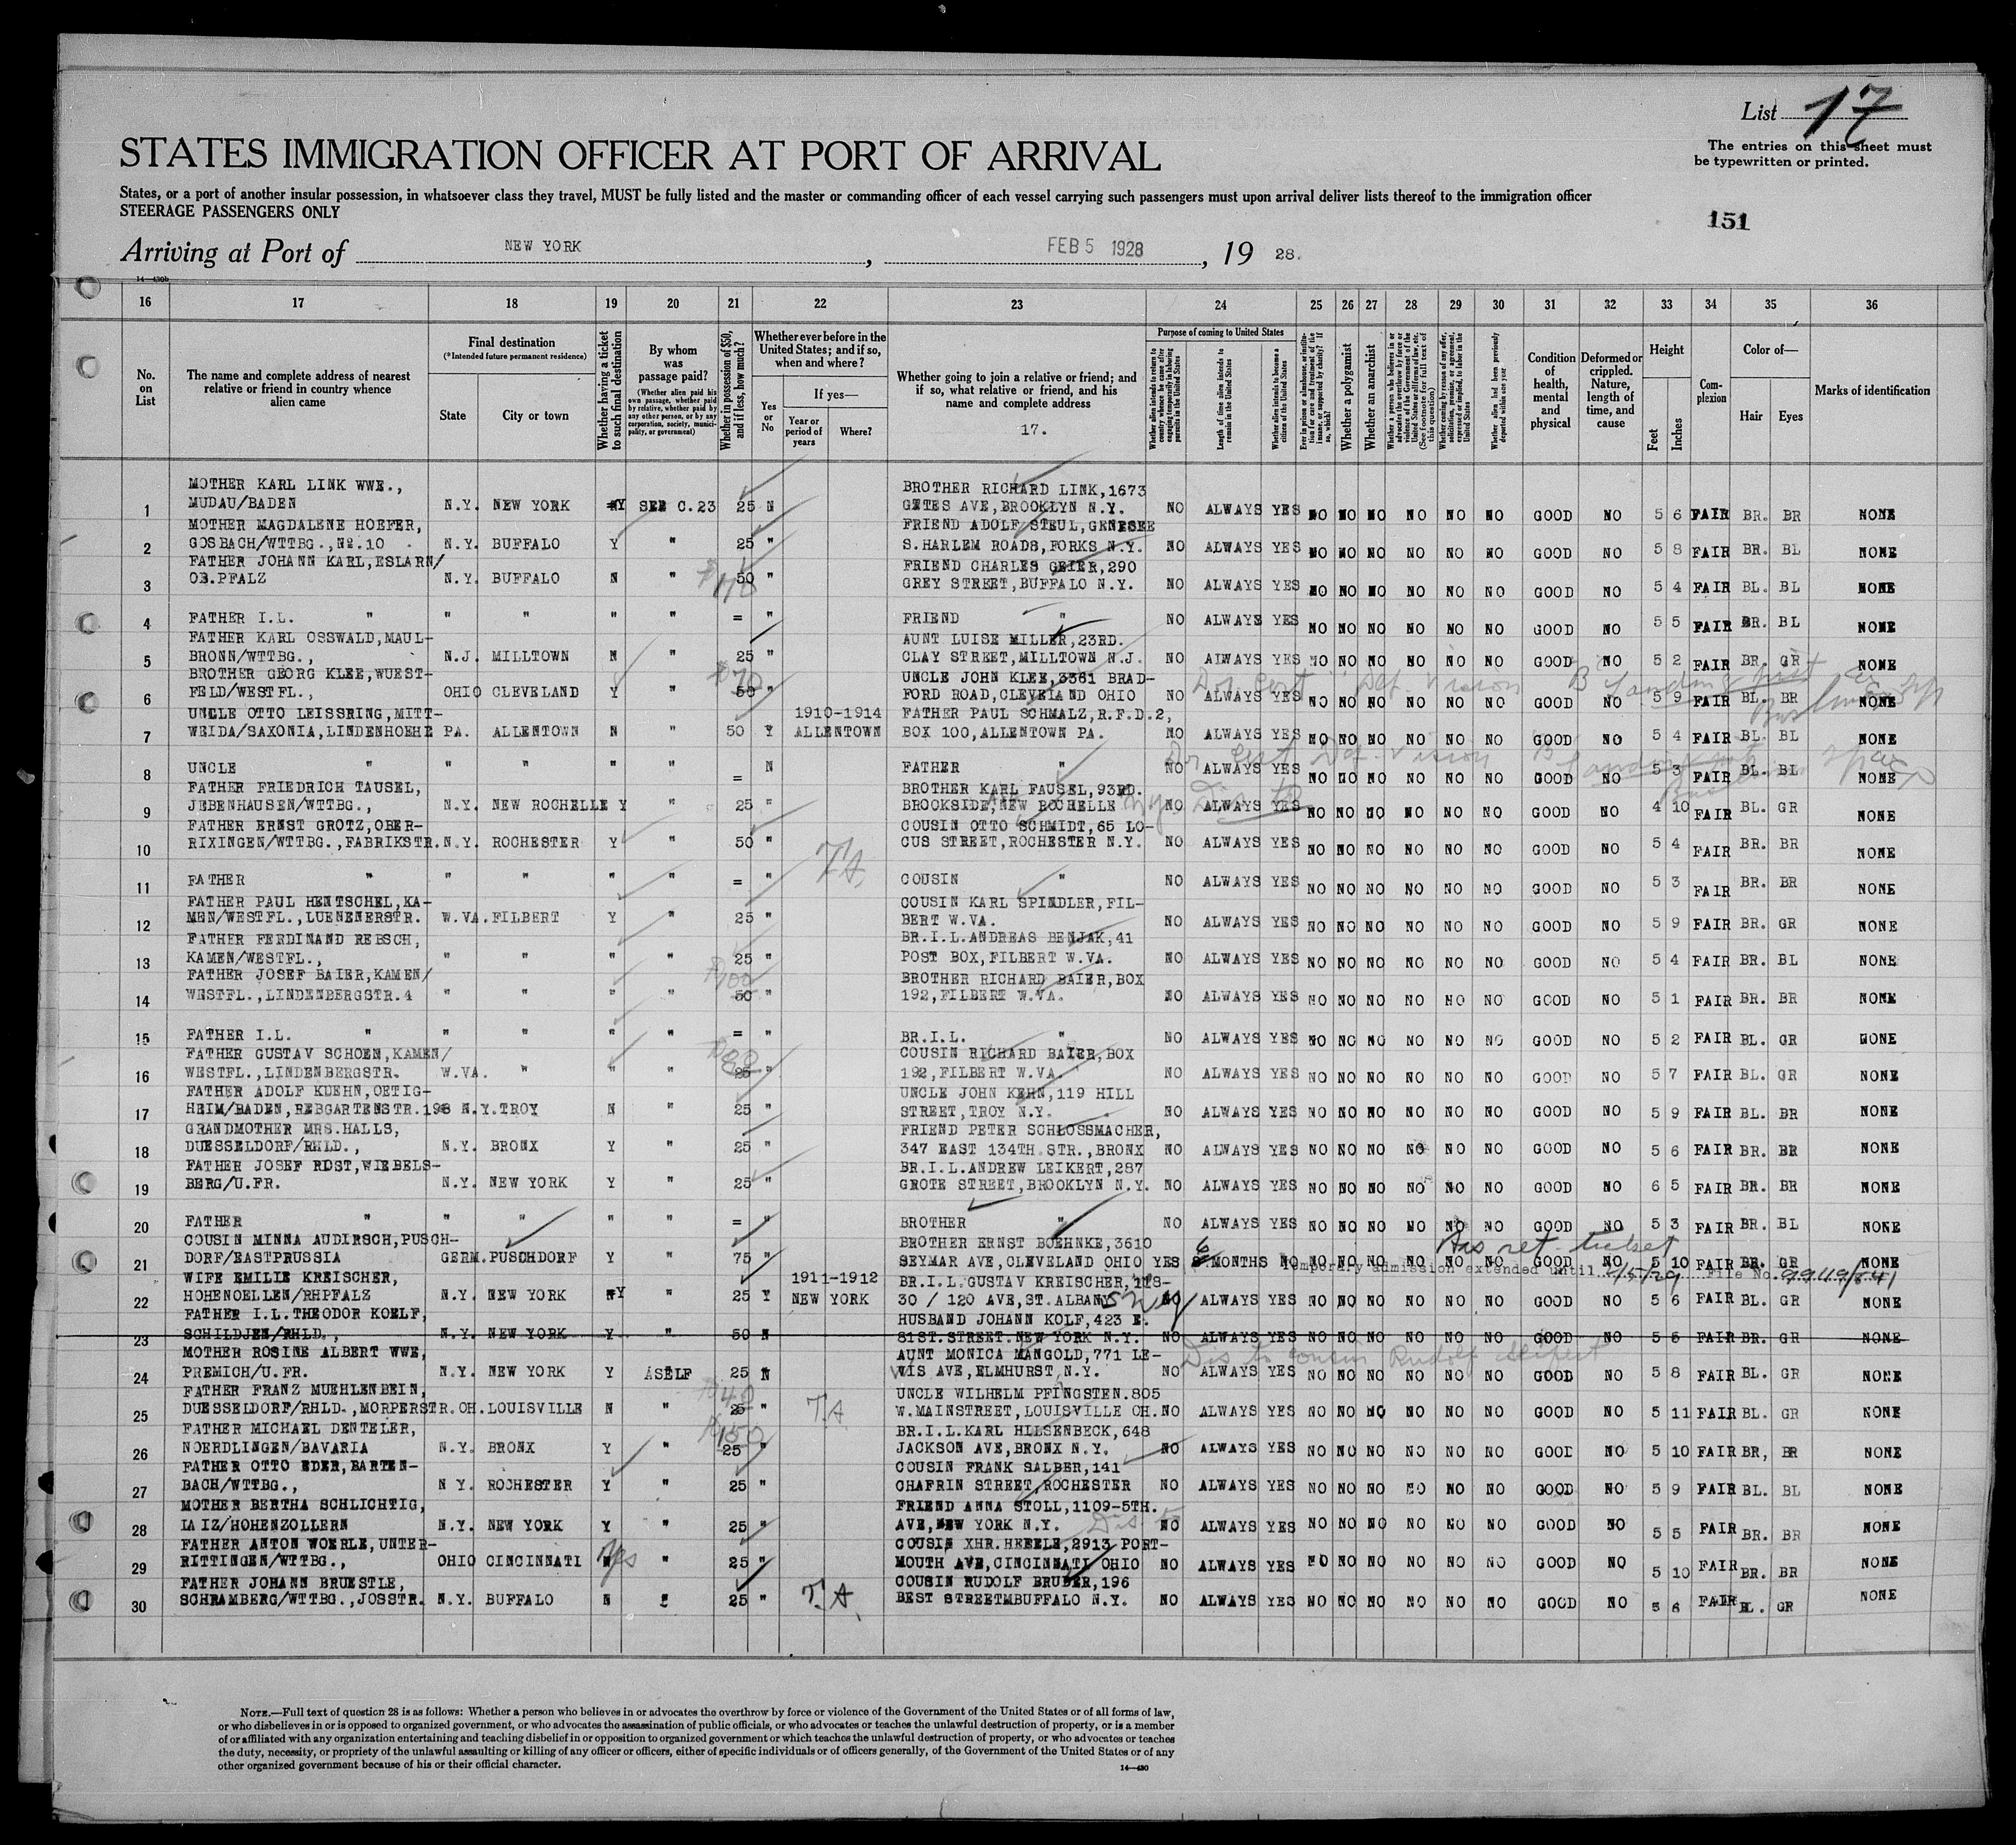 List 17
The entries on this sheet must
be typewritten or printed.
STATES IMMIGRATION OFFICER AT PORT OF ARRIVAL
States, or a port of another insular possession, in whatsoever class they travel, MUST be fully listed and the master or commanding officer of each vessel carrying such passengers must upon arrival deliver lists thereof to the immigration officer
STEERAGE PASSENGERS ONLY
151
Arriving at Port of NEW YORK, FEB 5 1928, 19 28.
14—430b
16 17 18 19 20 21 22 23 24 25 26 27 28 29 30 31 32 33 34 35 36
No. on List
The name and complete address of nearest relative or friend in country whence alien came
Final destination
(*Intended future permanent residence)
State City or town
Whether having a ticket to such final destination
By whom was passage paid?
(Whether alien paid his own passage, whether paid by relative, whether paid by any other person, or by any corporation, society, municipality, or government)
Whether in possession of $50, and if less, how much?
Whether ever before in the United States; and if so, when and where?
Yes or No
If yes—
Year or period of years Where?
Whether going to join a relative or friend; and if so, what relative or friend, and his name and complete address
17.
Purpose of coming to United States
Whether alien intends to return to country whence he came after engaging temporarily in laboring pursuits in the United States
Length of time alien intends to remain in the United States
Whether alien intends to become a citizen of the United States
Whether a polygamist
Whether an anarchist
Condition of health, mental and physical
Deformed or crippled. Nature, length of time, and cause
Height
Feet Inches
Complexion
Color of—
Hair Eyes
Marks of identification
MOTHER KARL LINK WWE., BROTHER RICHARD LINK,1673
1 MUDAU/BADEN N.Y. NEW YORK Y SEE C.23 25 N GETES AVE,BROOKLYN N.Y. NO ALWAYS YES NO NO NO NO NO NO GOOD NO 5 6 FAIR BR. BR NONE
MOTHER MAGDALENE HOEFER, FRIEND ADOLF STEUL,GENESEE
2 GOSBACH/WTTBG.,No.10 N.Y. BUFFALO Y " 25 " S.HARLEM ROADS,FORKS N.Y. NO ALWAYS YES NO NO NO NO NO NO GOOD NO 5 8 FAIR BR. BL NONE
FATHER JOHANN KARL,ESLARN/ FRIEND CHARLES GEIER,290
3 OB.PFALZ N.Y. BUFFALO N " 50 " GREY STREET,BUFFALO N.Y. NO ALWAYS YES NO NO NO NO NO NO GOOD NO 5 4 FAIR BL. BL NONE
4 FATHER I.L. " " " " " = " FRIEND " NO ALWAYS YES NO NO NO NO NO NO GOOD NO 5 5 FAIR BR. BL NONE
FATHER KARL OSSWALD,MAUL- AUNT LUISE MILLER,23RD.
5 BRONN/WTTBG., N.J. MILLTOWN N " 25 " CLAY STREET,MILLTOWN N.J. NO ALWAYS YES NO NO NO NO NO NO GOOD NO 5 2 FAIR BR. GR NONE
BROTHER GEORG KLEE,WUEST- $70 UNCLE JOHN KLEE,3361 BRAD- Dr. Cert Def. Vision
6 FELD/WESTFL., OHIO CLEVELAND Y " 50 " FORD ROAD,CLEVELAND OHIO NO ALWAYS YES NO NO NO NO NO NO GOOD NO 5 9 FAIR BL. BR NONE
UNCLE OTTO LEISSRING,MITT- 1910-1914 FATHER PAUL SCHMALZ,R.F.D.2,
7 WEIDA/SAXONIA,LINDENHOEHE PA. ALLENTOWN N " 50 Y ALLENTOWN BOX 100,ALLENTOWN PA. NO ALWAYS YES NO NO NO NO NO NO GOOD NO 5 4 FAIR BL. BL NONE
Dr. Cert Def. Vision
8 UNCLE " " " " " = N FATHER " NO ALWAYS YES NO NO NO NO NO NO GOOD NO 5 3 FAIR BL. BL NONE
FATHER FRIEDRICH TAUSEL, BROTHER KARL FAUSEL,93RD.
9 JEBENHAUSEN/WTTBG., N.Y. NEW ROCHELLE Y " 25 " BROOKSIDE,NEW ROCHELLE NO ALWAYS YES NO NO NO NO NO NO GOOD NO 4 10 FAIR BL. GR NONE
FATHER ERNST GROTZ,OBER- COUSIN OTTO SCHMIDT,65 LO-
10 RIXINGEN/WTTBG.,FABRIKSTR. N.Y. ROCHESTER Y " 50 " T.A. CUS STREET,ROCHESTER N.Y. NO ALWAYS YES NO NO NO NO NO NO GOOD NO 5 4 FAIR BR. BR NONE
11 FATHER " " " " " = " COUSIN " NO ALWAYS YES NO NO NO NO NO NO GOOD NO 5 3 FAIR BR. BR NONE
FATHER PAUL HENTSCHEL,KA- COUSIN KARL SPINDLER,FIL-
12 MEN/WESTFL.,LUENENERSTR. W.VA. FILBERT Y " 25 " BERT W.VA. NO ALWAYS YES NO NO NO NO NO NO GOOD NO 5 9 FAIR BR. GR NONE
FATHER FERDINAND REBSCH, BR.I.L.ANDREAS BENJAK,41
13 KAMEN/WESTFL., " " " " 25 " POST BOX,FILBERT W.VA. NO ALWAYS YES NO NO NO NO NO NO GOOD NO 5 4 FAIR BR. BL NONE
FATHER JOSEF BAIER,KAMEN/ $100 BROTHER RICHARD BAIER,BOX
14 WESTFL.,LINDENBERGSTR.4 " " " " 50 " 192,FILBERT W.VA. NO ALWAYS YES NO NO NO NO NO NO GOOD NO 5 1 FAIR BR. BR NONE
15 FATHER I.L. " " " " " = " BR.I.L. " NO ALWAYS YES NO NO NO NO NO NO GOOD NO 5 2 FAIR BL. GR GONE
FATHER GUSTAV SCHOEN,KAMEN/ COUSIN RICHARD BAIER,BOX
16 WESTFL.,LINDENBERGSTR. W.VA. " " " 25 " 192,FILBERT W.VA. NO ALWAYS YES NO NO NO NO NO NO GOOD NO 5 7 FAIR BL. GR NONE
FATHER ADOLF KUEHN,OETIG- UNCLE JOHN KEHN,119 HILL
17 HEIM/BADEN,REBGARTENSTR.198 N.Y. TROY N " 25 " STREET,TROY N.Y. NO ALWAYS YES NO NO NO NO NO NO GOOD NO 5 9 FAIR BL. BR NONE
GRANDMOTHER MRS.HALLS, FRIEND PETER SCHLOSSMACHER,
18 DUESSELDORF/RHLD., N.Y. BRONX Y " 25 " 347 EAST 134TH.STR.,BRONX NO ALWAYS YES NO NO NO NO NO NO GOOD NO 5 6 FAIR BR. BR NONE
FATHER JOSEF ROST,WIEBELS- BR.I.L.ANDREW LEIKERT,287
19 BERG/U.FR. N.Y. NEW YORK Y " 25 " GROTE STREET,BROOKLYN N.Y. NO ALWAYS YES NO NO NO NO NO NO GOOD NO 6 5 FAIR BR. BR NONE
20 FATHER " " " " " = " BROTHER " NO ALWAYS YES NO NO NO NO NO NO GOOD NO 5 3 FAIR BR. BL NONE
COUSIN MINNA AUDIRSCH,PUSCH- BROTHER ERNST BOEHNKE,3610 Has ret. ticket
21 DORF/EASTPRUSSIA GERM. PUSCHDORF Y " 75 " SEYMAR AVE,CLEVELAND OHIO YES 6 MONTHS NO NO NO NO NO NO NO GOOD NO 5 10 FAIR BR. GR NONE
Temporary admission extended until 2/5/29 File No. 99119/841
WIFE EMILIE KREISCHER, 1911-1912 BR.I.L.GUSTAV KREISCHER,
22 HOHENOELLEN/RHPFALZ N.Y. NEW YORK Y " 25 Y NEW YORK 30 / 120 AVE,ST.ALBANS NO ALWAYS YES NO NO NO NO NO NO GOOD NO 5 6 FAIR BL. GR NONE
FATHER I.L.THEODOR KOELF, HUSBAND JOHANN KOLF,423 E.
23 SCHILDJEN/RHLD., N.Y. NEW YORK Y " 50 N 81ST.STREET.NEW YORK N.Y. NO ALWAYS YES NO NO NO NO NO NO GOOD NO 5 6 FAIR BR. GR NONE
MOTHER ROSINE ALBERT WWE, AUNT MONICA MANGOLD,771 LE- Dis to cousin Rudolf
24 PREMICH/U.FR. N.Y. NEW YORK Y ASELF 25 N WIS AVE,ELMHURST,N.Y. NO ALWAYS YES NO NO NO NO NO NO GOOD NO 5 8 FAIR BL. GR NONE
FATHER FRANZ MUEHLENBEIN, $40 UNCLE WILHELM PFINGSTEN.805
25 DUESSELDORF/RHLD.,MORPERSTR. OH. LOUISVILLE N " 25 " T.A. W.MAINSTREET,LOUISVILLE OH. NO ALWAYS YES NO NO NO NO NO NO GOOD NO 5 11 FAIR BL. GR NONE
FATHER MICHAEL DENTELER, $150 BR.I.L.KARL HILSENBECK,648
26 NOERDLINGEN/BAVARIA N.Y. BRONX Y " 25 " JACKSON AVE,BRONX N.Y. NO ALWAYS YES NO NO NO NO NO NO GOOD NO 5 10 FAIR BR, BR NONE
FATHER OTTO EDER,BARTEN- COUSIN FRANK SALBER,141
27 BACH/WTTBG., N Y. ROCHESTER Y " 25 " CHAFRIN STREET,ROCHESTER NO ALWAYS YES NO NO NO NO NO NO GOOD NO 5 9 FAIR BL. BL NONE
MOTHER BERTHA SCHLICHTIG, FRIEND ANNA STOLL,1109-5TH.
28 LAIZ/HOHENZOLLERN N.Y. NEW YORK Y " 25 " AVE,NEW YORK N.Y. Dis. to NO ALWAYS YES NO NO NO NO NO NO GOOD NO 5 5 FAIR BR. BR NONE
FATHER ANTON WOERLE,UNTER- COUSIN XHR.HEBELE,2913 PORT-
29 RITTINGEN/WTTBG., OHIO CINCINNATI yes " 25 " MOUTH AVE,CINCINNATI OHIO NO ALWAYS YES NO NO NO NO NO NO GOOD NO 5 10 FAIR BR. BR NONE
FATHER JOHANN BRUESTLE, COUSIN RUDOLF BRUDER,196
30 SCHRAMBERG/WTTBG.,JOSSTR. N.Y. BUFFALO N " 25 " T.A. BEST STREETMBUFFALO N.Y. NO ALWAYS YES NO NO NO NO NO NO GOOD NO 5 6 FAIR BL. GR NONE
NOTE.—Full text of question 28 is as follows: Whether a person who believes in or advocates the overthrow by force or violence of the Government of the United States or of all forms of law,
or who disbelieves in or is opposed to organized government, or who advocates the assassination of public officials, or who advocates or teaches the unlawful destruction of property, or is a member
of or affiliated with any organization entertaining and teaching disbelief in or opposition to organized government or which teaches the unlawful destruction of property, or who advocates or teaches
the duty, necessity, or propriety of the unlawful assaulting or killing of any officer or officers, either of specific individuals or of officers generally, of the Government of the United States or of any
other organized government because of his or their official character.
14—430